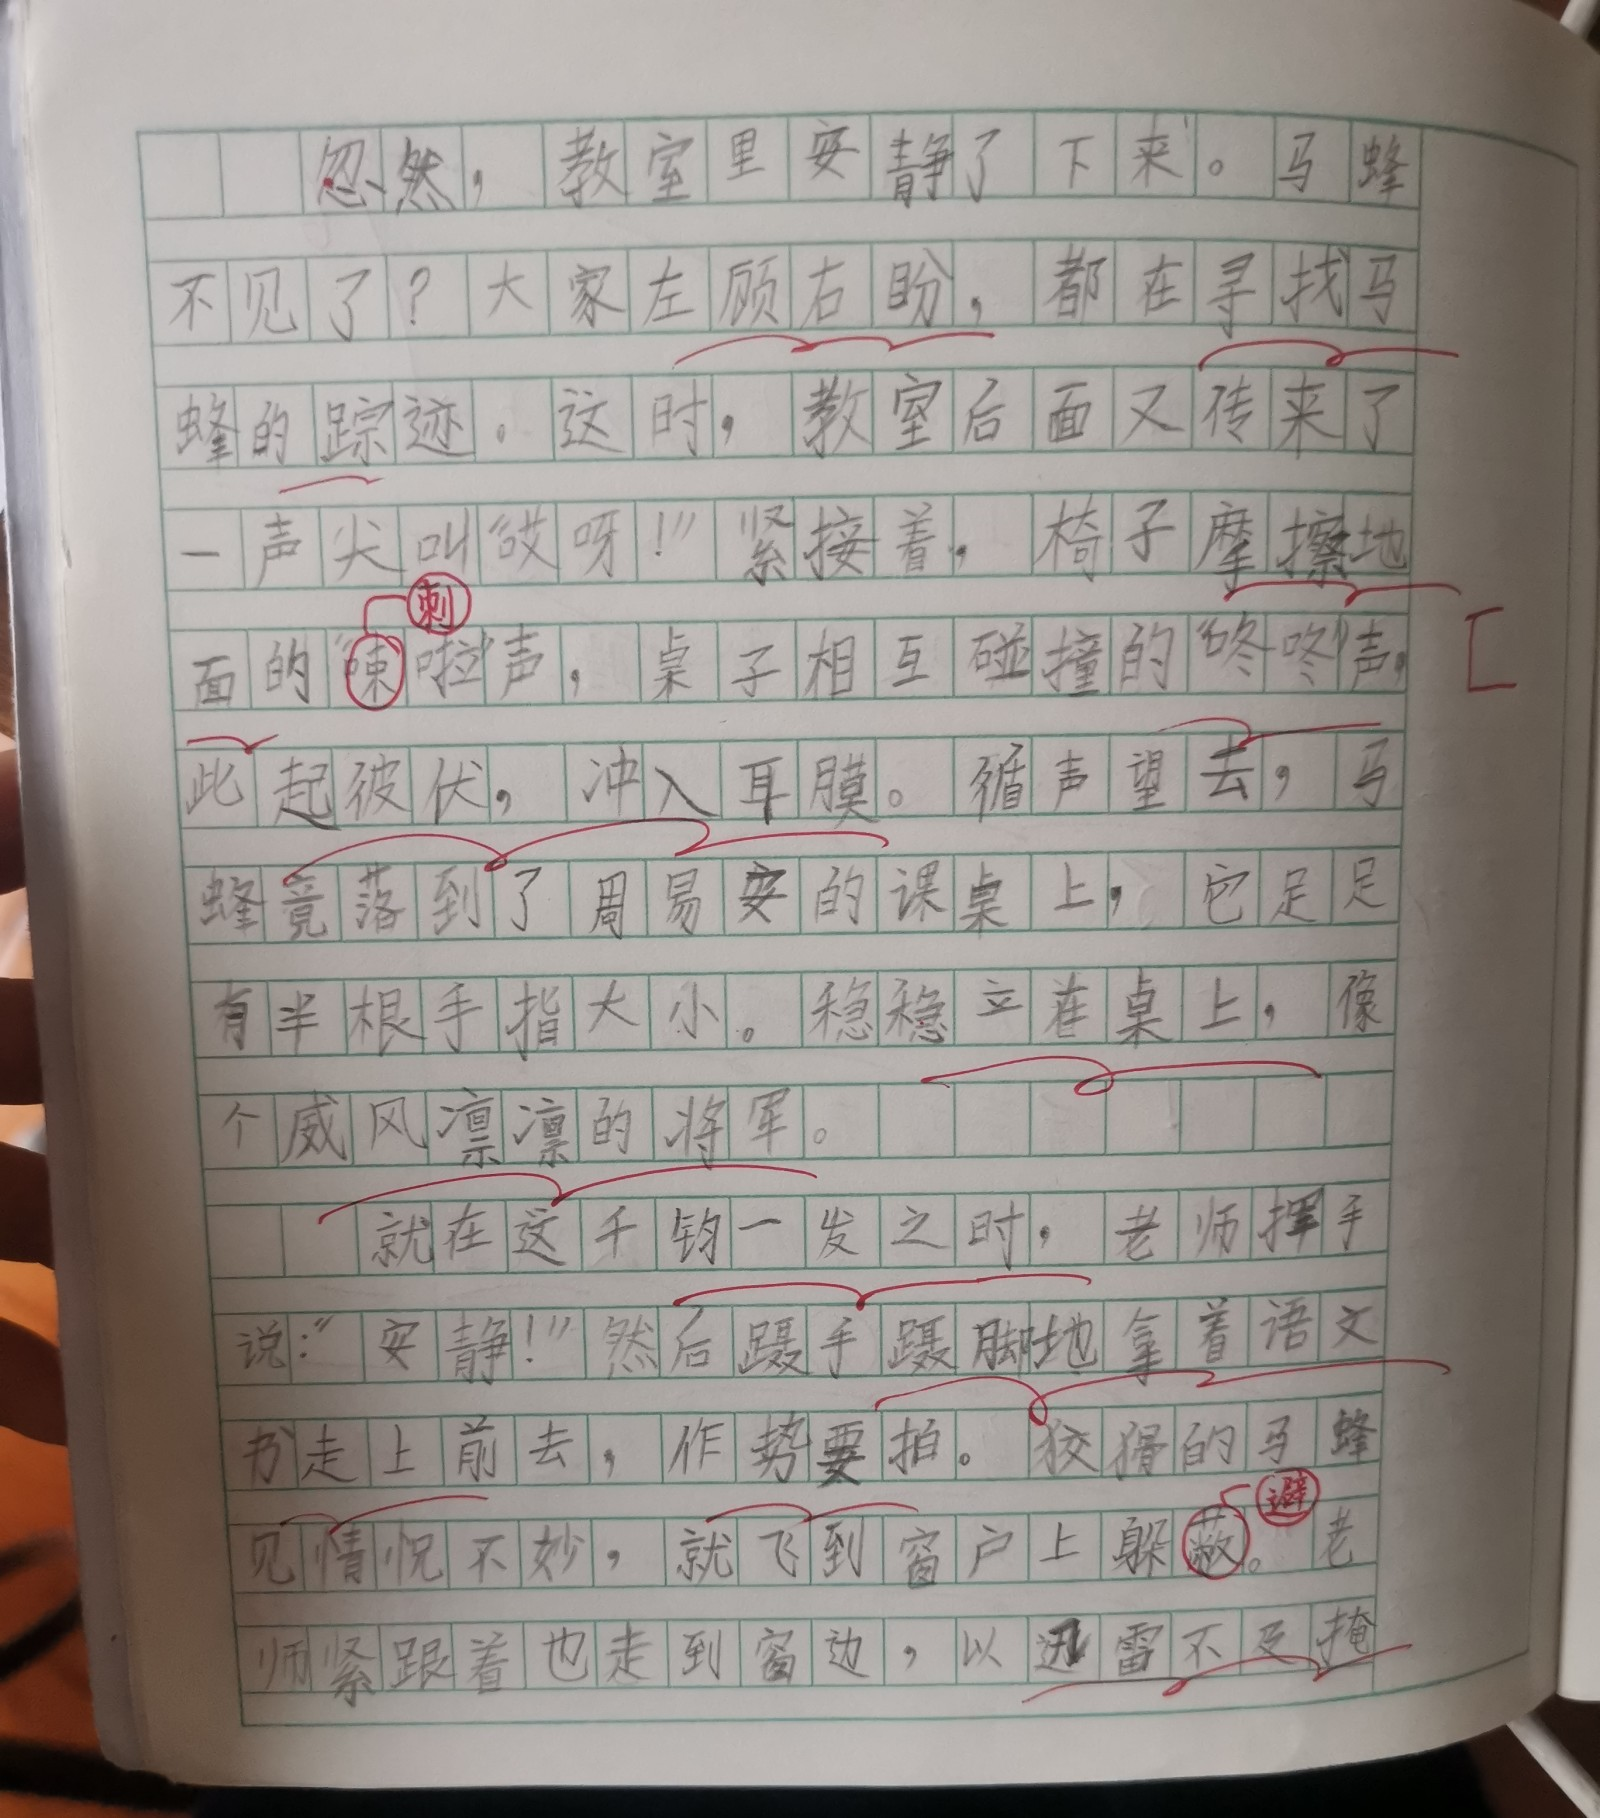 忽然，教室里安静了下来。马蜂
不见了？大家左顾右盼，都在寻找马
蜂的踪迹。这时，教室后面又传来了
一声尖叫“哎呀！”紧接着，椅子摩擦地
刺
面的“喇啦”声，桌子相互碰撞的“咚咚”声，
此起彼伏，冲入耳膜。循声望去，马
蜂竟落到了周易安的课桌上，它足足
有半根手指大小。稳稳立在桌上，像
个威风凛凛的将军。
就在这千钧一发之时，老师挥手
说：“安静！”然后蹑手蹑脚地拿着语文
书走上前去，作势要拍。狡猾的马蜂
避
见情况不妙，就飞到窗户上躲蔽。老
师紧跟着也走到窗边，以迅雷不及掩